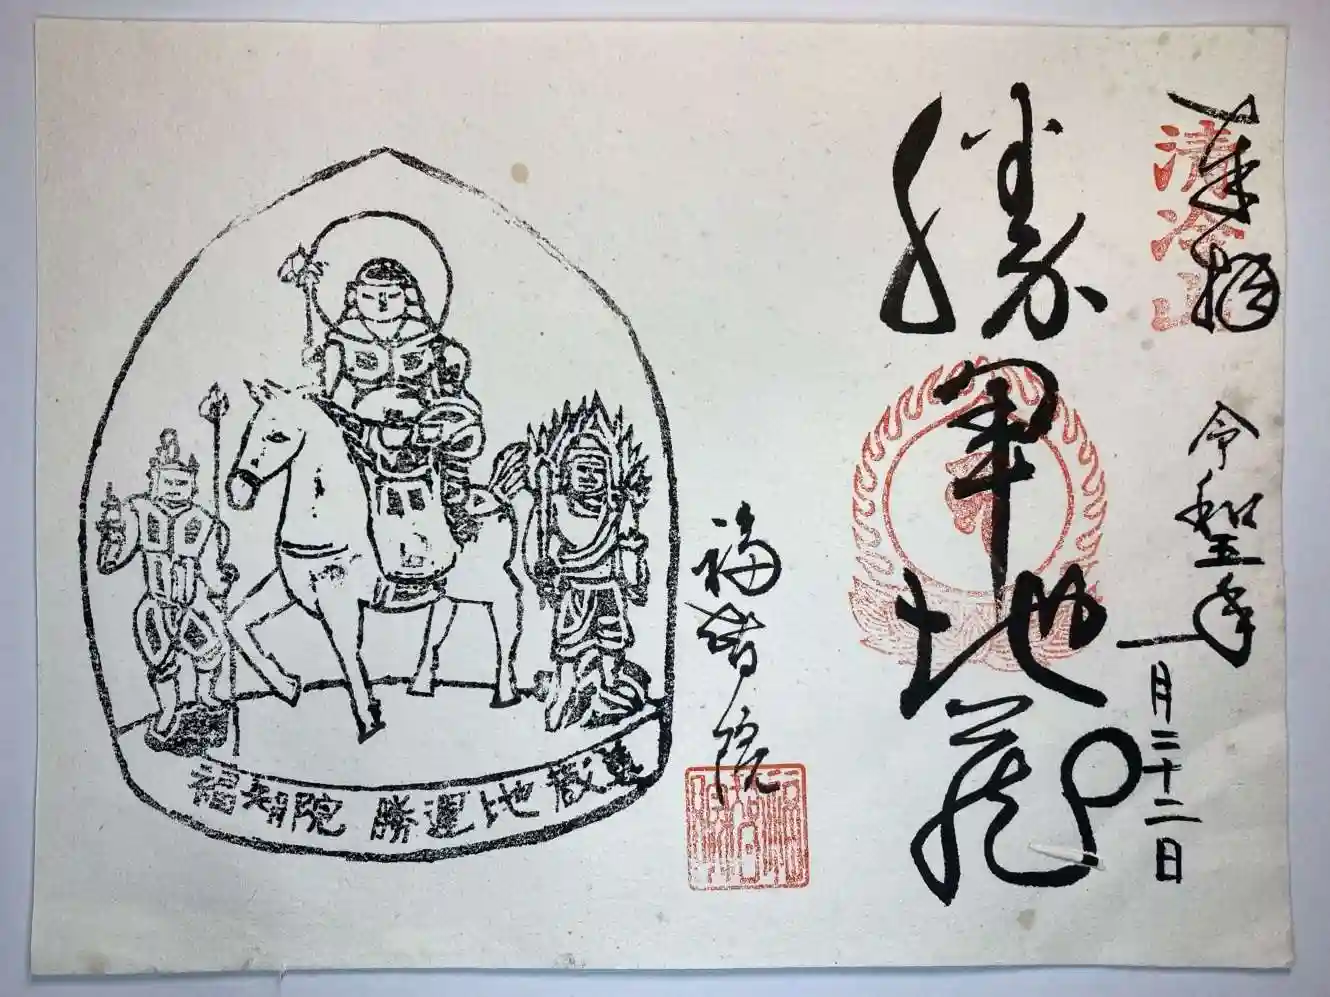 奉拝
清冷山
令和五年
一月二十二日
勝軍地蔵
福智院
福智院 勝運地蔵尊